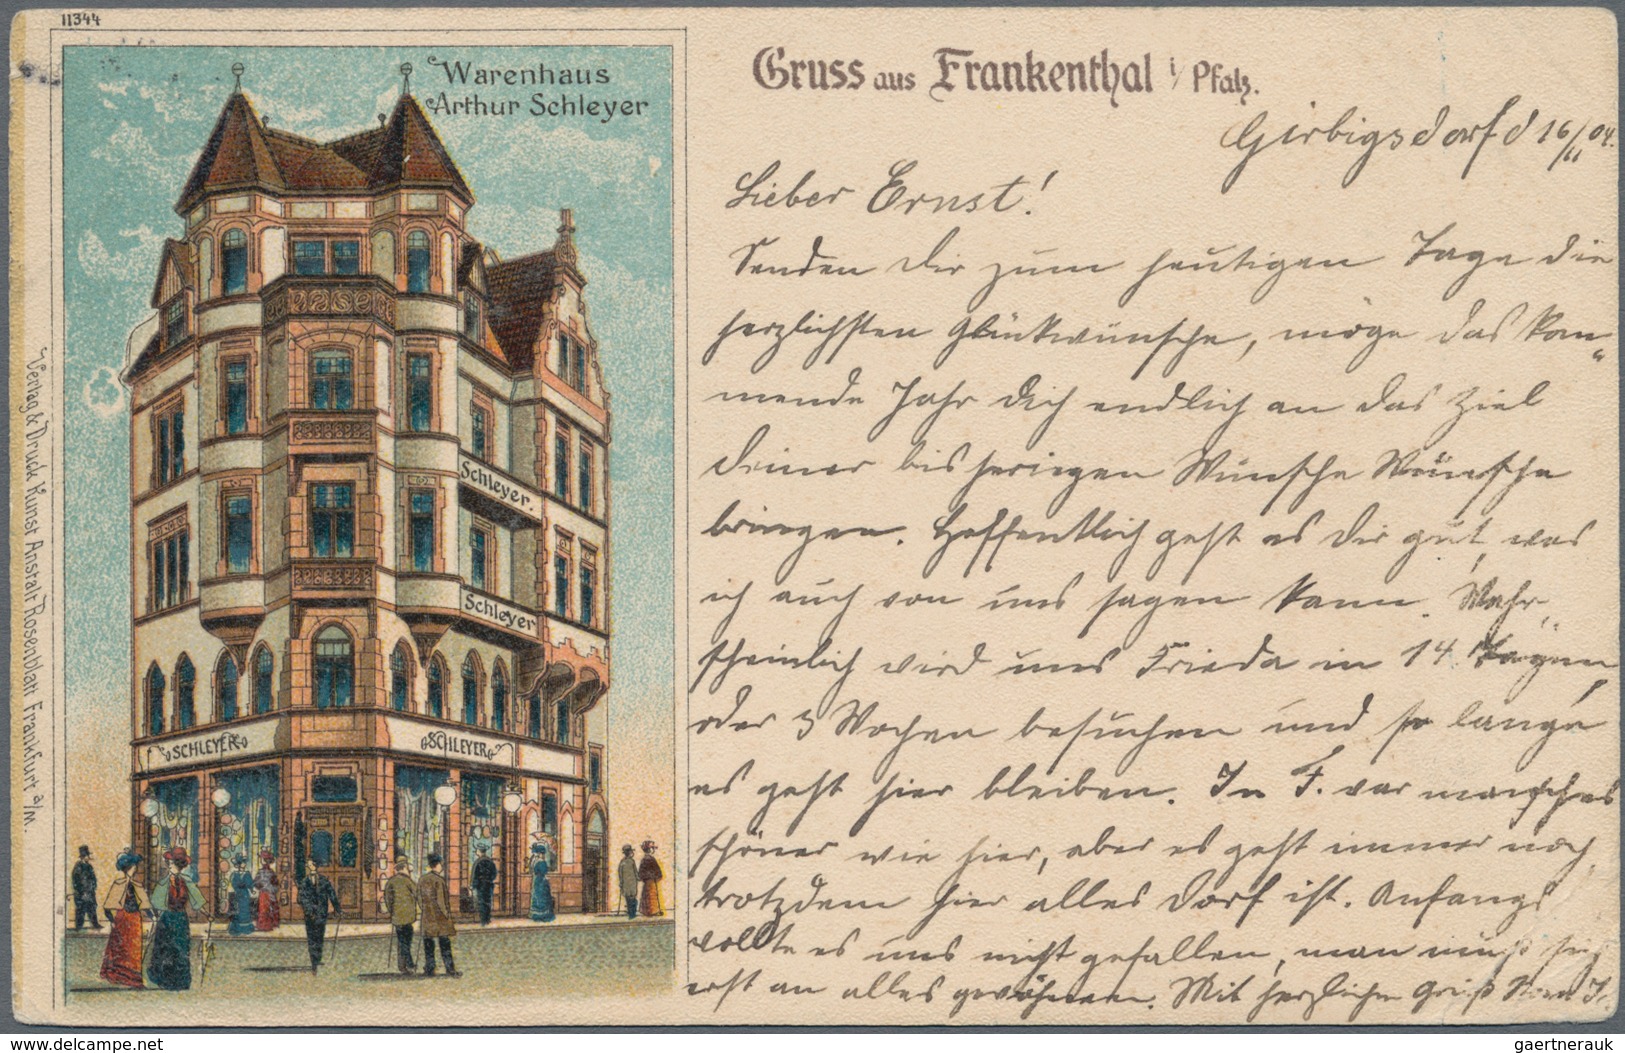 11344
Warenhaus
Arthur Schleyer
Schleyer.
Schleyer
SCHLEYER
SCHLEYER
Verlag & Druck Kunst Anstalt Rosenblatt Frankfurt a/M.
Gruss aus Frankenthal i/ Pfalz.
Girbigsdorf d 16/11 04.
Lieber Ernst!
Senden dir zum heutigen Tage die
herzlichsten Glückwünsche, möge das kom„
mende Jahr dich endlich an das Ziel
deiner bisherigen Wünsche
bringen. Hoffentlich geht es dir gut, was
ich auch von uns sagen kann. Wahr„
scheinlich wird uns Frieda in 14 Tagen
oder 3 Wochen besuchen und so lange
es geht hier bleiben. In F. war manches
schöner wie hier, aber es geht immer noch,
trotzdem hier alles Dorf ist. Anfangs
wollte es uns nicht gefallen, man muß sich
erst an alles gewöhnen. Mit herzlichem Gruß
gaertnerauk